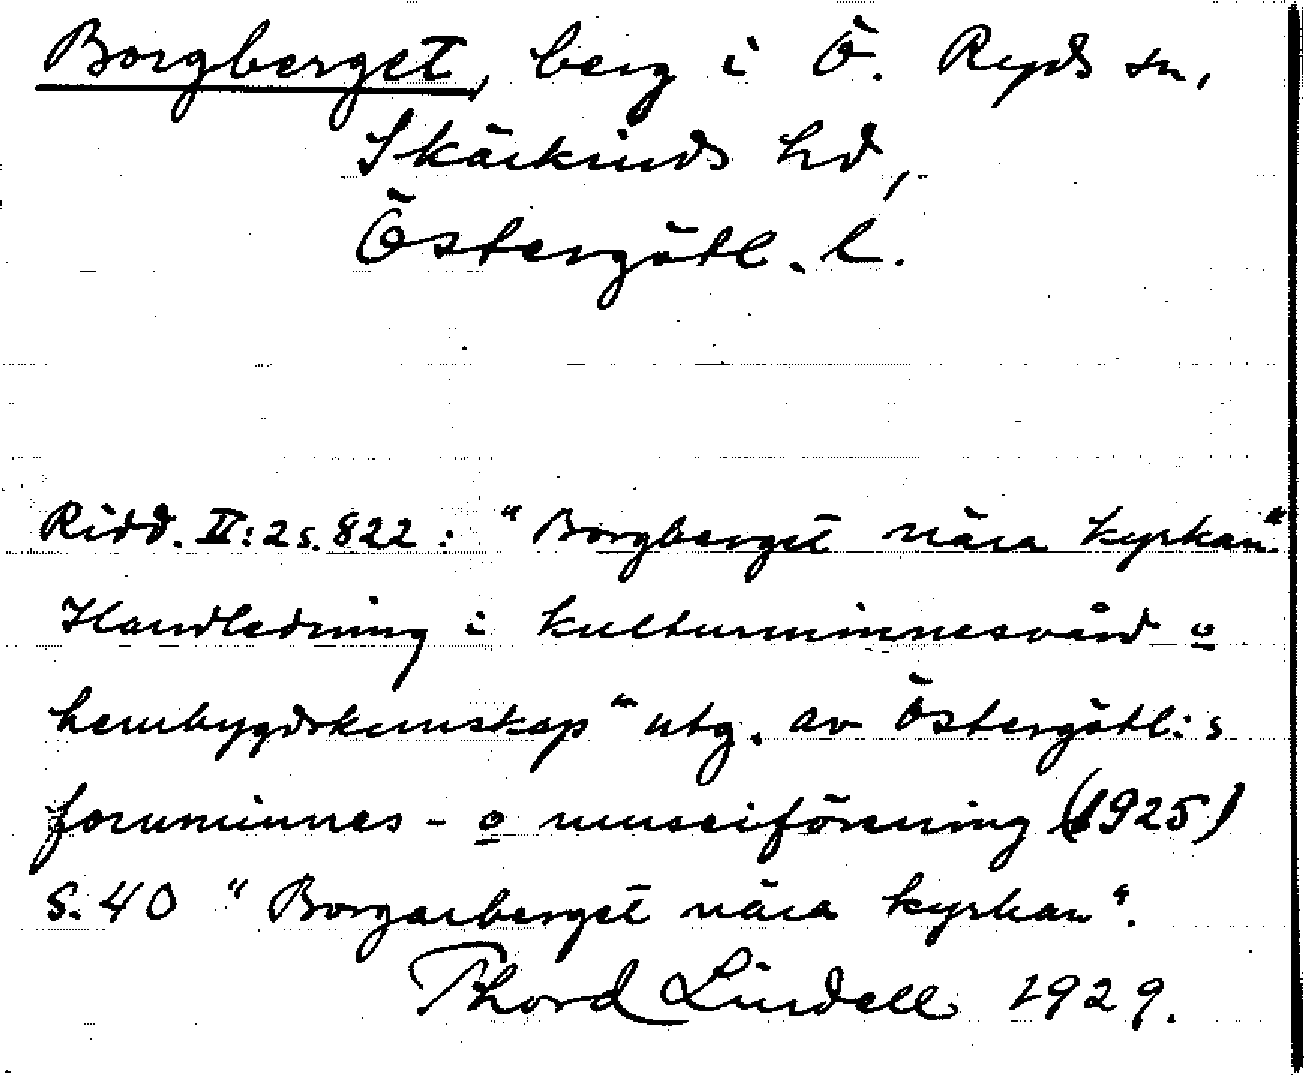 Borgberget, berg i Ö. Ryds sn,
Skärkinds hd,
Östergötl. l.
Ridd. II:2 s. 822 : "Borgberget nära kyrkan."
Handledning i kulturminnesvård o
hembygdskunskap" utg. av Östergötl:s
fornminnes- o museiförening (1925)
S. 40 "Borgarberget nära kyrkan".
Thord Lindell 1929.